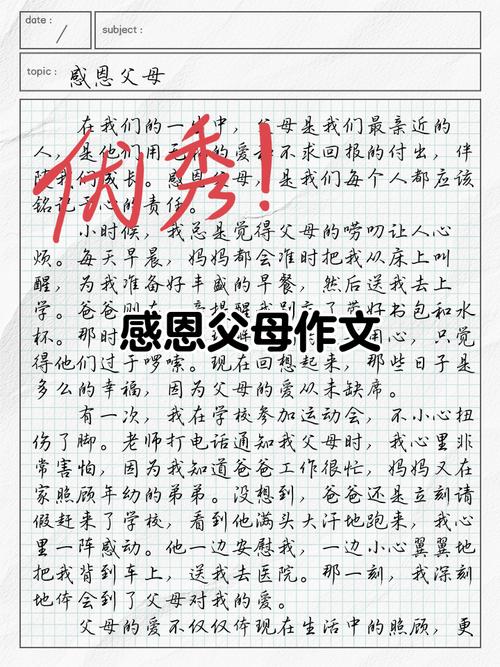 date :
subject :
topic : 感恩父母
在我们的一中，父母是我们最亲近的
人，是他们用的爱不求回报的付出，伴
我们成长。感恩父母，是我们每个人都应该
铭记于心的责任。
优秀！
小时候，我总是觉得父母的唠叨让人心
烦。每天早晨，妈妈都会准时把我从床上叫
醒，为我准备好丰盛的早餐，然后送我去上
学。爸爸则在提醒我别忘了带好书包和水
杯。那时用心，只觉
感恩父母作文
得他们过于啰嗦。现在回想起来，那些日子是
多么的幸福，因为父母的爱从未缺席。
有一次，我在学校参加运动会，不小心扭
伤了脚。老师打电话通知我父母时，我心里非
常害怕，因为我知道爸爸工作很忙，妈妈又在
家照顾年幼的弟弟。没想到，爸爸还是立刻请
假赶来了学校，看到他满头大汗地跑来，我心
里一阵感动。他一边安慰我，一边小心翼翼地
把我背到车上，送我去医院。那一刻，我深刻
地体会到了父母对我的爱。
父母的爱不仅仅体现在生活中的照顾，更